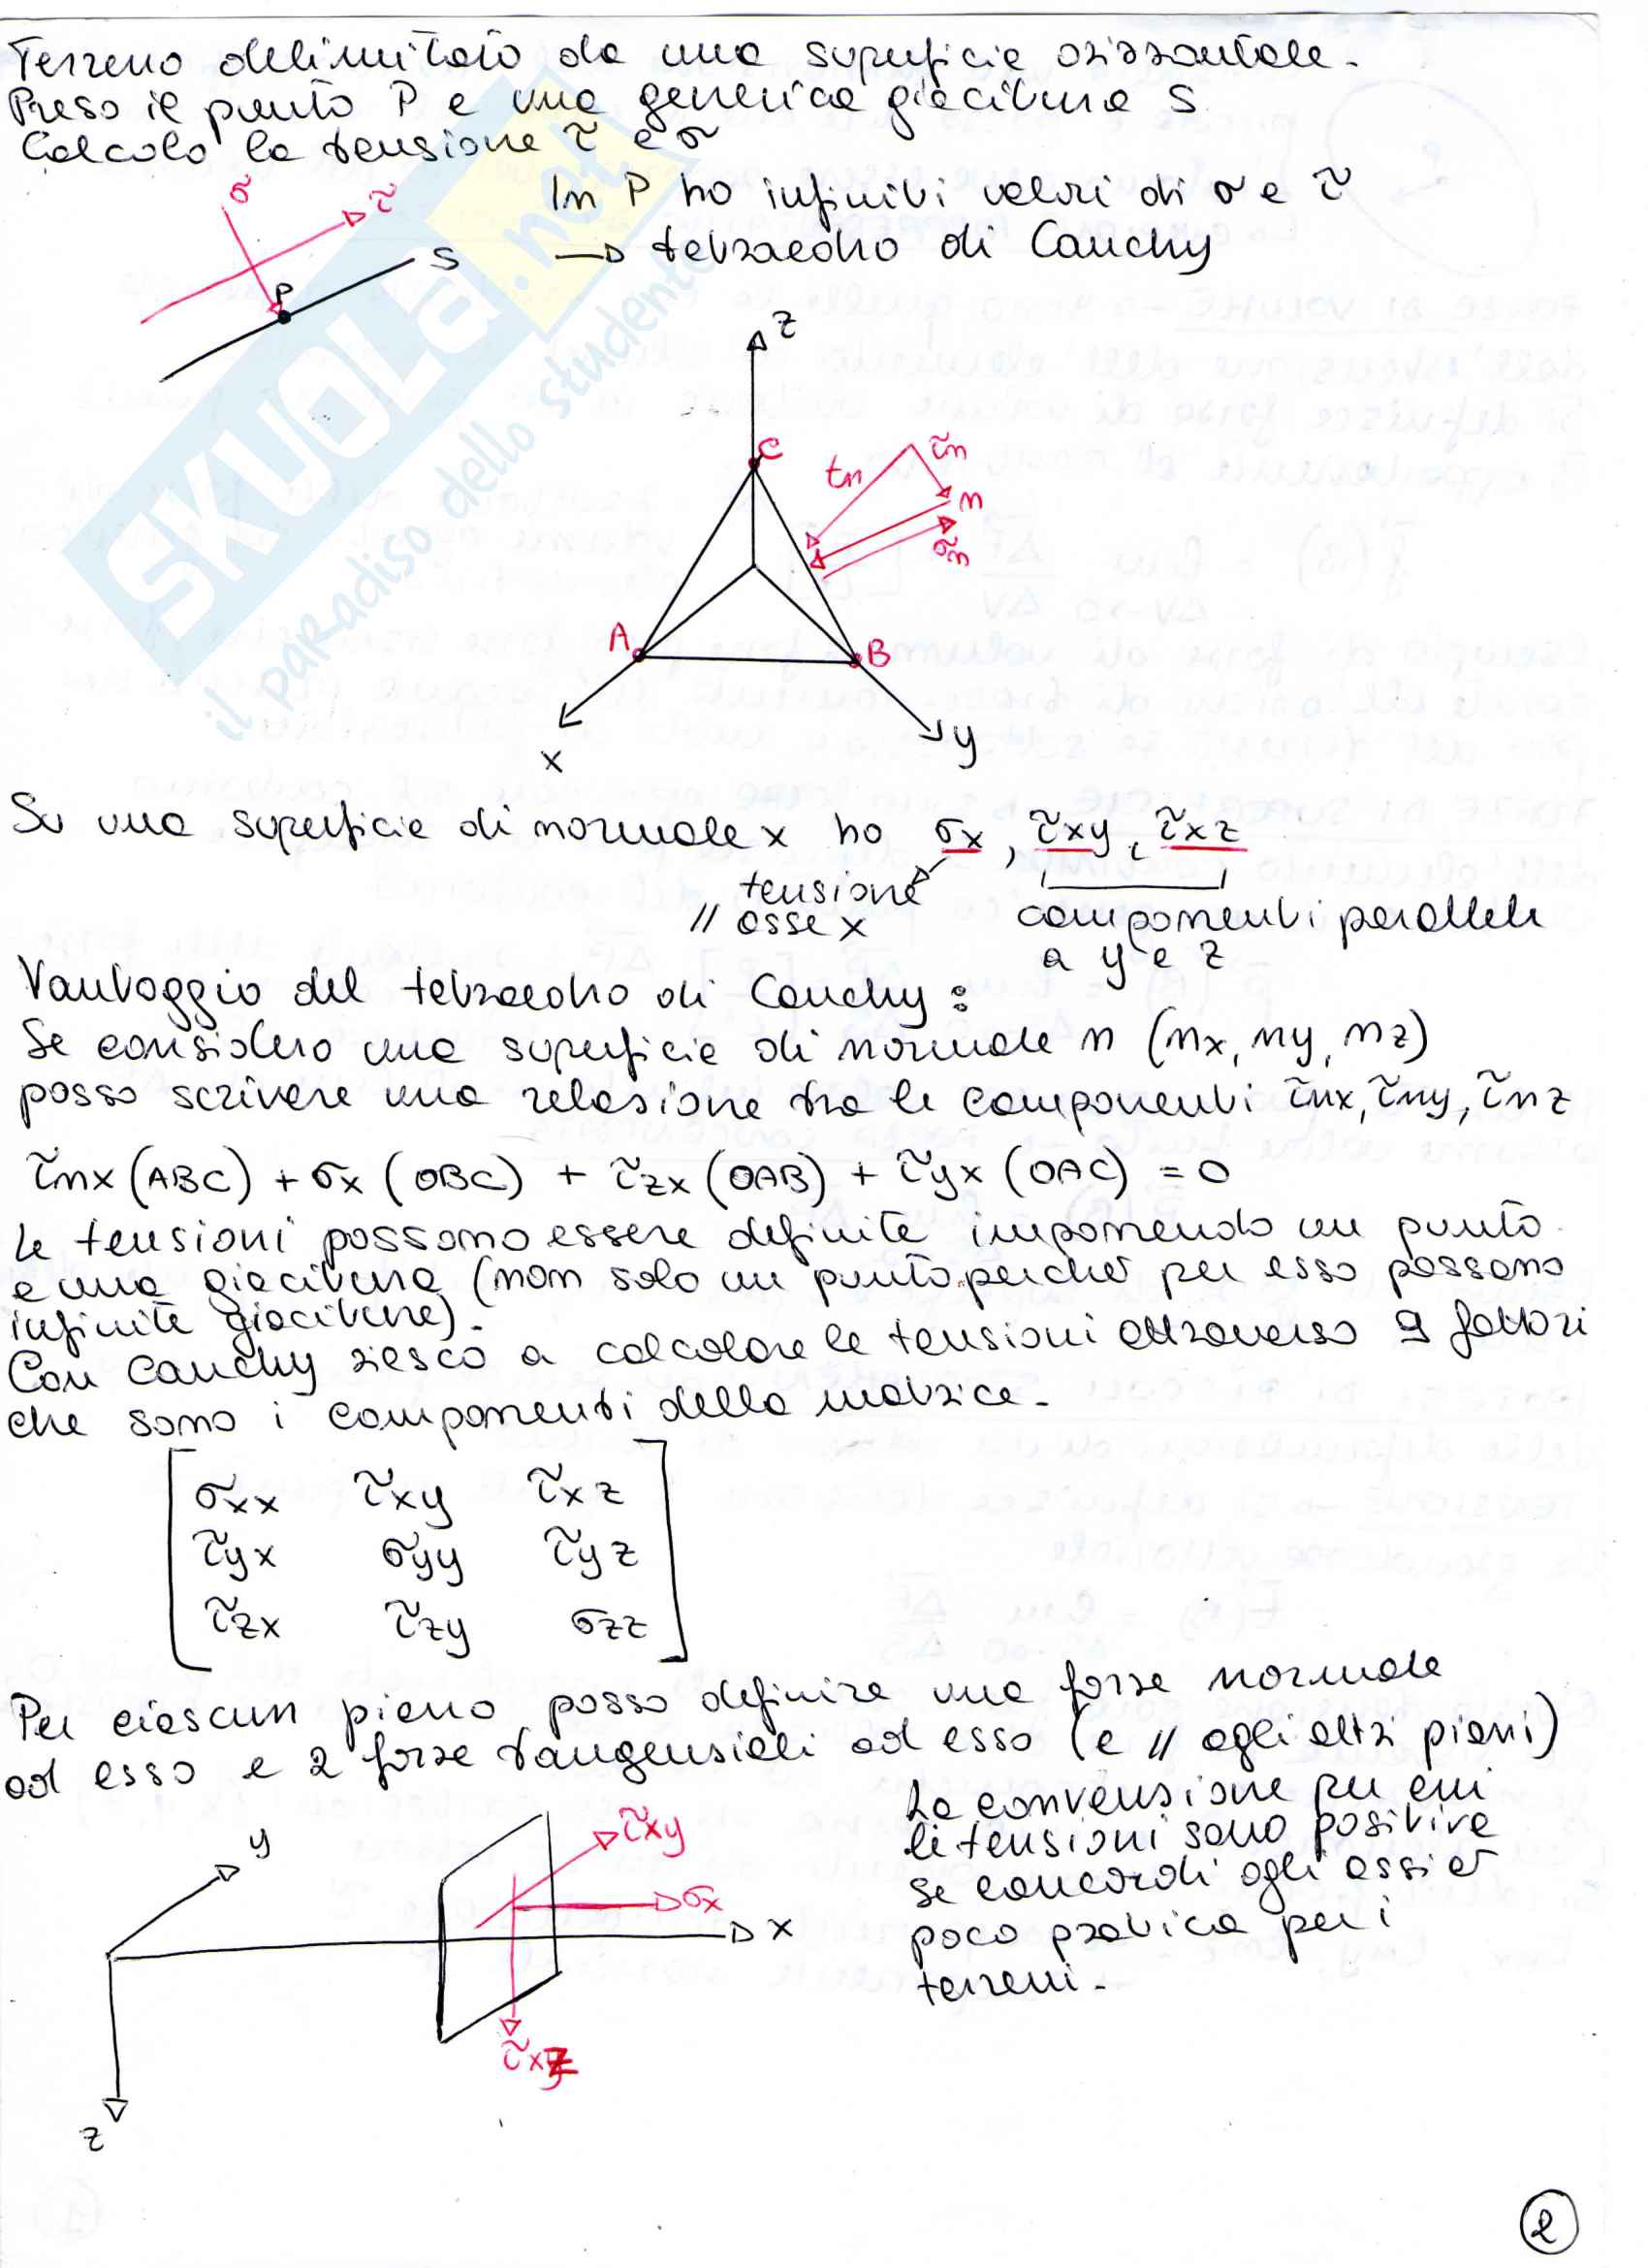 Terreno delimitato da una superficie orizzontale.
Preso il punto P e una generica giacitura S
Calcolo la tensione τ e σ
In P ho infiniti valori di σ e τ
→ tetraedro di Cauchy
σ
τ
S
P
z
C
tn
τn
n
σn
A
B
x
y
SKUOLA.net
il paradiso dello studente
Su una superficie di normale x ho σx, τxy, τxz
tensione
// asse x
componenti parallele
a y e z
Vantaggio del tetraedro di Cauchy:
Se considero una superficie di normale n (nx, ny, nz)
posso scrivere una relazione tra le componenti τnx, τny, τnz
τnx (ABC) + σx (OBC) + τzx (OAB) + τyx (OAC) = 0
Le tensioni possono essere definite imponendo un punto
e una giacitura (non solo un punto perché per esso passano
infinite giaciture).
Con Cauchy riesco a calcolare le tensioni attraverso 9 fattori
che sono i componenti della matrice.
σxx τxy τxz
τyx σyy τyz
τzx τzy σzz
Per ciascun piano posso definire una forza normale
ad esso e 2 forze tangenziali ad esso (e // agli altri piani)
La convenzione per cui
le tensioni sono positive
se concordi agli assi è
poco pratica per i
terreni.
y
τxy
σx
x
τxz
z
2